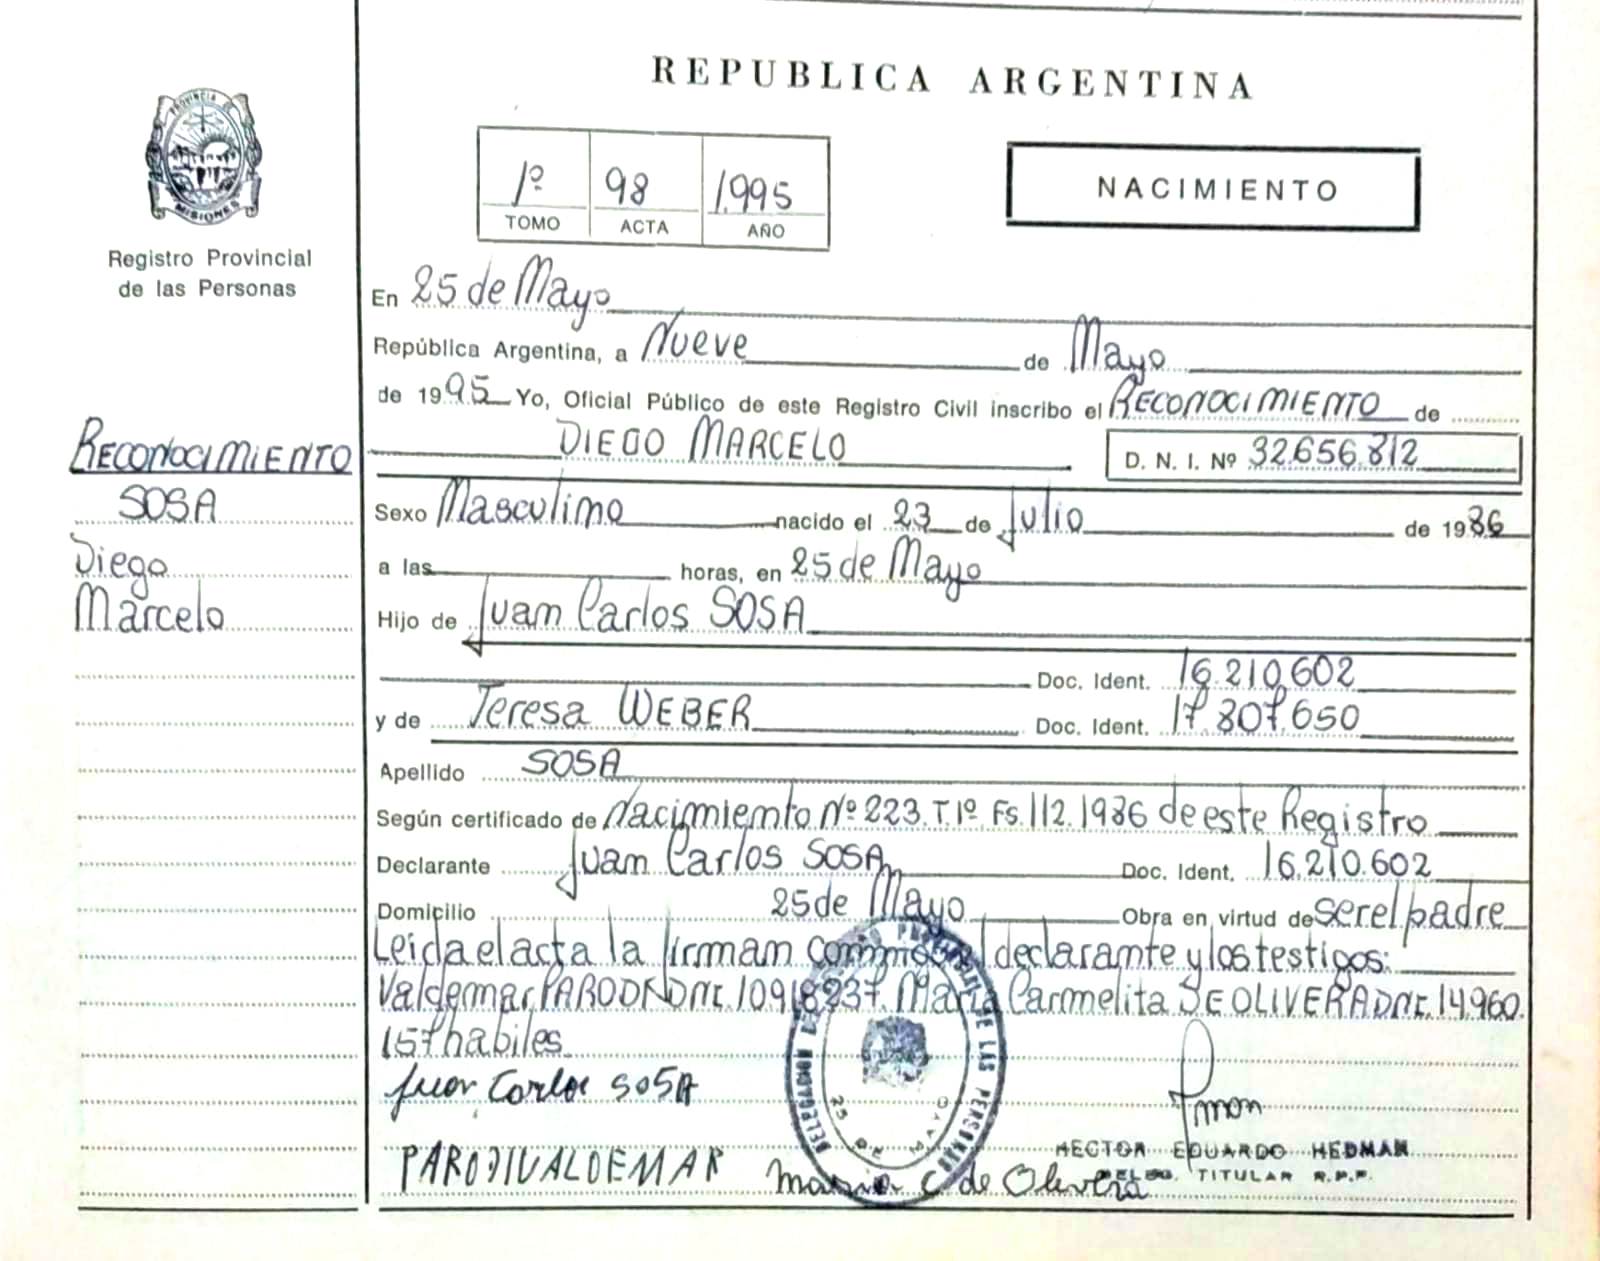 REPUBLICA ARGENTINA
PROVINCIA DE
MISIONES
Registro Provincial
de las Personas
1º 98 1.995
TOMO ACTA AÑO
NACIMIENTO
En 25 de Mayo
República Argentina, a Nueve de Mayo
de 1995 Yo, Oficial Público de este Registro Civil inscribo el RECONOCIMIENTO de
DIEGO MARCELO D. N. I. Nº 32.656.812
RECONOCIMIENTO
SOSA
Diego
Marcelo
Sexo Masculino nacido el 23 de Julio de 1986
a las horas, en 25 de Mayo
Hijo de Juan Carlos SOSA
Doc. Ident. 16.210.602
y de Teresa WEBER Doc. Ident. 17.807.650
Apellido SOSA
Según certificado de Nacimiento Nº 223. T. 1º. Fs. 112. 1986 de este Registro
Declarante Juan Carlos SOSA Doc. Ident. 16.210.602
Domicilio 25 de Mayo Obra en virtud de ser el padre
Leida el acta la firman conmigo el declarante y los testigos:
Valdemar PARODI DNI. 10918237. Maria Carmelita DE OLIVERA DNI. 14.960.
157 habiles
Juan Carlos SOSA
PARODI VALDEMAR Maria C de Olivera
HECTOR EDUARDO HEDMAN
DELEG. TITULAR R.P.P.
25 DE MAYO
DE LAS PERSONAS